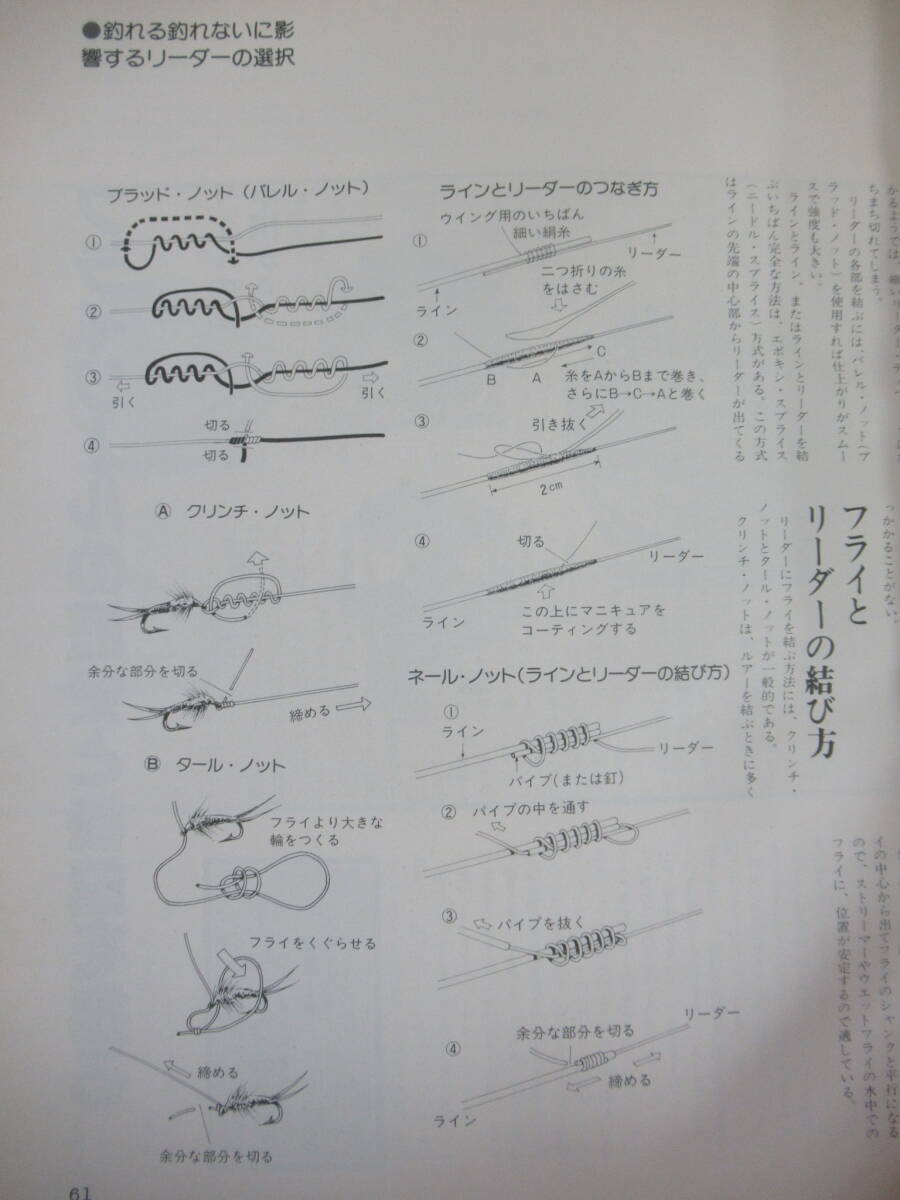 ●釣れる釣れないに影
響するリーダーの選択
ブラッド・ノット(バレル・ノット)
①
②
③
引く
引く
④
切る
切る
Ⓐ クリンチ・ノット
余分な部分を切る
締める
Ⓑ タール・ノット
フライより大きな
輪をつくる
フライをくぐらせる
締める
余分な部分を切る
ラインとリーダーのつなぎ方
①
ウイング用のいちばん
細い絹糸
リーダー
二つ折りの糸
をはさむ
ライン
②
C
B
A
糸をAからBまで巻き、
さらにB→C→Aと巻く
③
引き抜く
2cm
④
切る
リーダー
この上にマニキュアを
コーティングする
ライン
ネール・ノット(ラインとリーダーの結び方)
①
ライン
リーダー
パイプ(または釘)
②
パイプの中を通す
③
パイプを抜く
④
余分な部分を切る
リーダー
締める
ライン
ちまち切れてしまう。
リーダーの各部を結ぶには、バレル・ノット(ブ
ラッド・ノット)を使用すれば仕上がりがスムー
スで強度も大きい。
ラインとライン、またはラインとリーダーを結
ぶいちばん完全な方法は、エポキシ・スプライス
(ニードル・スプライス)方式がある。この方式
はラインの先端の中心部からリーダーが出てくる
っかかることがない。
フライと
リーダーの結び方
リーダーにフライを結ぶ方法には、クリンチ・
ノットとタール・ノットが一般的である。
クリンチ・ノットは、ルアーを結ぶときに多く
イの中心から出てフライのシャンクと平行になる
ので、ストリーマーやウエットフライの水中での
フライに、位置が安定するので適している。
61